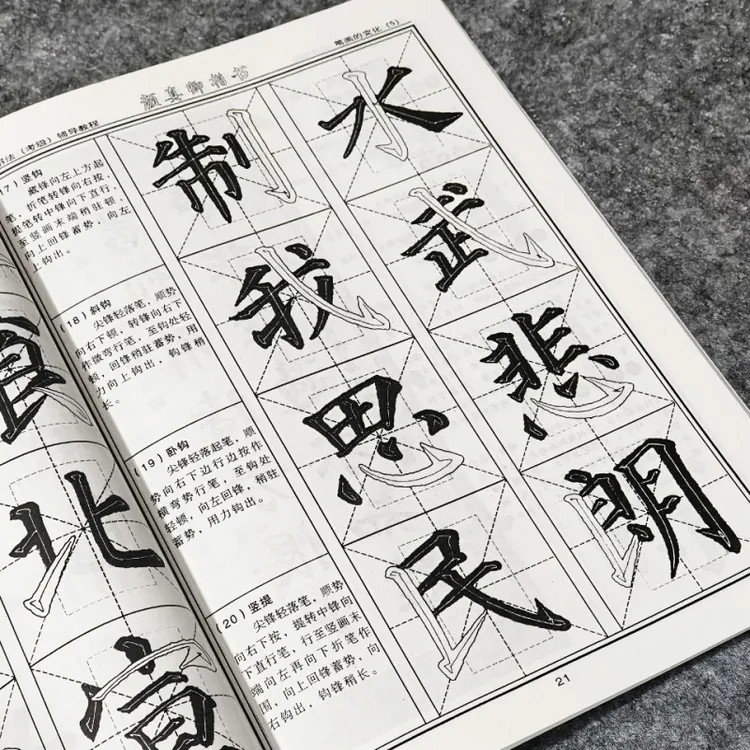 笔画的变化（5）
颜真卿楷书
法（考级）辅导教程
7）竖钩
藏锋向左上方起
笔，折笔转锋向右按，
提笔转中锋向下直行，
至竖画末端稍驻顿，
向上回锋蓄势，向左
上钩出。
制 水
（18）斜钩
尖锋轻落笔，顺势
向右下顿，转锋向右下
作微弯行笔，至钩处轻
顿，回锋稍驻蓄势，用
力向上钩出，钩锋稍
长。
我 武
（19）卧钩
尖锋轻落起笔，顺
势向右下边行边按作
横弯势行笔，至钩处
轻顿，向左回锋，稍驻
蓄势，用力钩出。
思 悲
（20）竖提
尖锋轻落笔，顺势
向右下按，提转中锋向
下直行笔，行至竖画末
端向左再向下折笔作
围，向上回锋蓄势，向
右钩出，钩锋稍长。
民 朗
21
食
北
宫